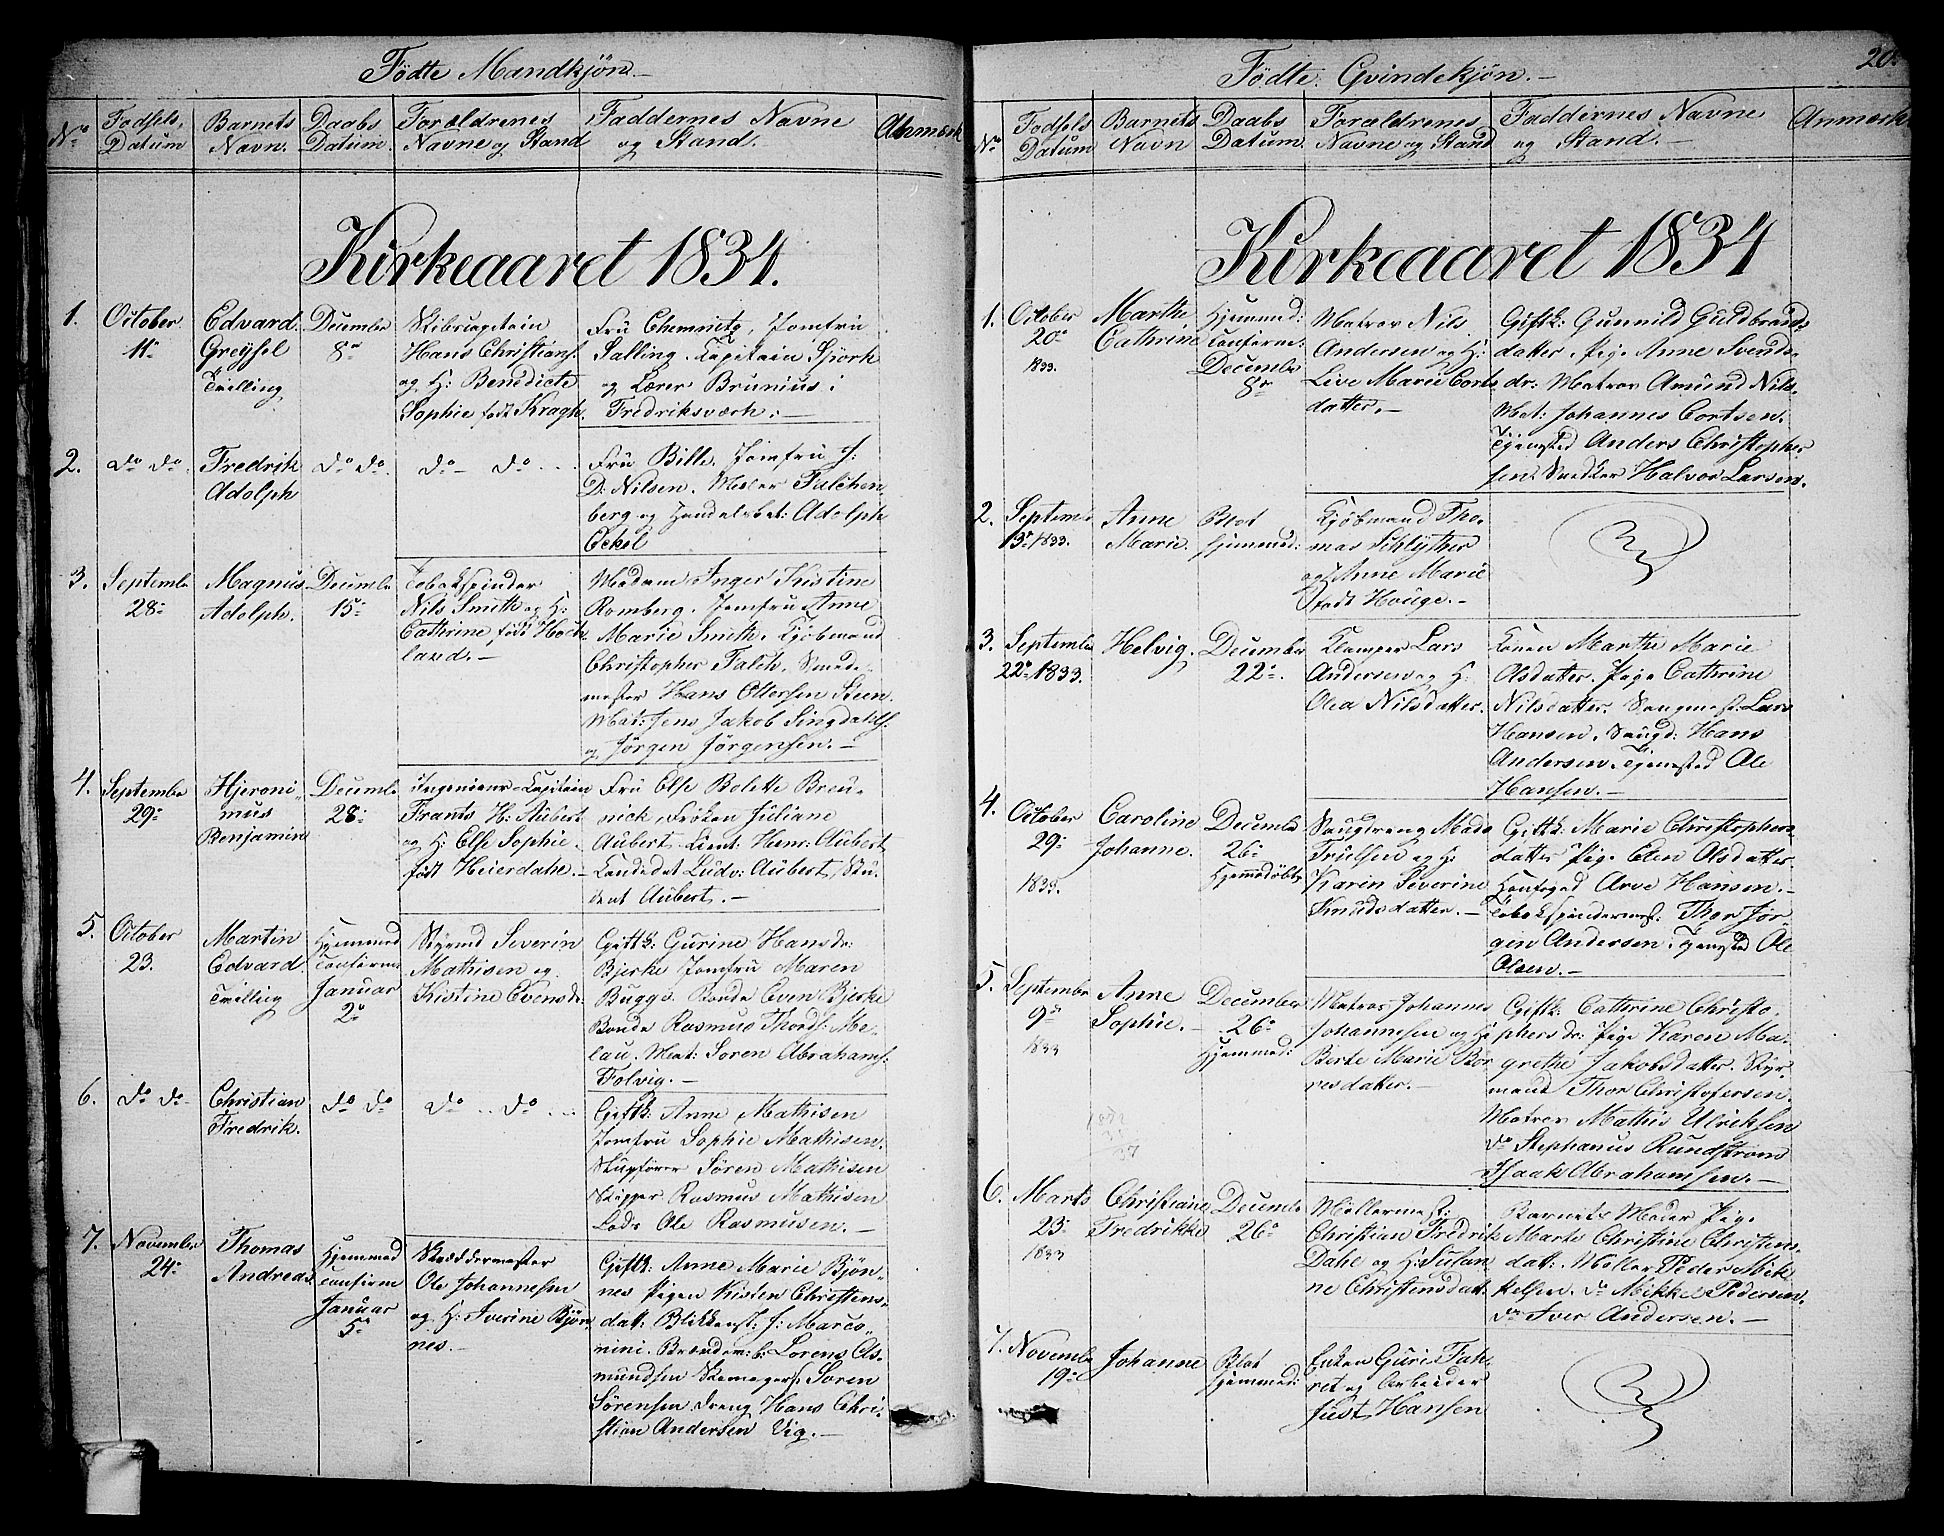 Födte Mandkjön.-
No
Födsels, Datum
Barnets Navn.
Daabs Datum.
Forældrenes Navne og Stand
Faddernes Navne og Stand.
Anmærk
Kirkeaaret 1834.
1.
October 11te
Edvard
Greysel
Tvilling
December
8de
Skibscapitain
Hans Christians:
og H: Benedicte
Sophie født Kragh.
Fru Chemnitz, Jomfru
Salling. Capitain Spörk
og Lærer Brunius i
Fredriksværn.-
2.
do do.
Fredrik
Adolph
do do.
do - do
Fru Bille. Jomfru J:
D: Nilsen. Mægler Falchen
berg og Handelsbet: Adolph
Öckel
3.
Septembr
28de
Magnus
Adolph.
Decembr
15de
Tobakspinder
Nils Smith og H:
Cathrine født Hoch
land.-
Madam Inger Kistine
Romberg. Jomfru Anne
Marie Smith. Kjöbmand
Christopher Falch. Smede
mester Hans Ottersen Steen
Mat: Jens Jakob Singdahls:
og Jörgen Jörgensen.-
4.
Septembr
29de
Hjeroni,,
mus
Benjamin
Decembr
28de
Ingenieur-Capitain
Frants H: Aubert
og H: Else Sophie
født Heierdahl.-
Fru Else Bolette Breu-
nick, Fröken Juliane
Aubert. Lieut: Henr: Aubert
Candidat Ludv: Aubert, Stu,
dent Aubert.-
5.
October
23.
Martin
Edvard
Tvilling
Hjemmed
Confirm
Januar
2de
Styrmd Severin
Mathisen og
Kistine Evensdr
Giftk: Gurine Hansdr:
Bjerke Jomfru Maren
Bugge. Bonde Even Bjerke
Bonde Rasmus Thords: Me-
lau. Mat: Sören Abrahams:
Folvig.-
6.
do do
Christian
Fredrik.
do do
do .. do ..
Giftk: Anne Mathisen
Jomfru Sophie Mathisen.
Skipsförer Sören Mathisen
Skipper Rasmus Mathisen
Lods Ole Rasmusen.-
7.
November
24de
Thomas
Andreas
Hjemmed
Confirm
Januar
5te
Skræddermester
Ole Johannesen
og H: Iverine Bjön
nes.-
Giftk: Anne Marie Bjön-
nes Pigen Kisten Christens-
datt: Blikkensl: J: Marco,,
nini. Brænder: b: Lorens As-
mundsen Skomagers: Sören
Sörensen Dreng Hans Chri-
stian Andersen Vig.-
Födte Qvindekjön.-
20.
No
Födsels Datum
Barnets Navn
Daabs Datum.
Forældrenes Navne og Stand
Faddernes Navne og Stand.-
Anmærk
Kirkeaaret 1834
1.
October
20de
1833.
Marthe
Cathrine
Hjemmed:
Confirme:
December
8de
Matros Nils
Andersen og H:
Live Marie Corts
datter.-
Giftk: Gunnild Guldbrands
datter. Pige Anne Svends-
dr: Matros Amund Nils-
Mat: Johannes Cortsen.
Tjenested Anders Christopher
sen. Snedker Halvor Larsen.
2.
Septembr
15de 1833.
Anne
Marie.
Blot
hjemmed:
Kjöbmand Tho-
mas Schlyther
og Anne Marie
född Houge.-
3.
Septembr
22de 1833.
Helvig.
December
22de.
Klamper Lars
Andersen og H:
Olea Nilsdatter.
Konen Marthe Marie
Olsdatter. Pige Cathrine
Nilsdatter. Saugmest: Lars
Hansen. Saugd: Hans
Andersen. Tjenested Ole
Hansen.-
4.
October
29de
1833.
Caroline
Johanne.
Decembr
26de
Hjemmedöbt
Saugdreng Mads
Trulsen og H:
Karin Severine
Knudsdatter.-
Giftk: Marie Christophers
datter Pige Elen Olsdatter.
Arve Hansen.-
Tobakspindermest: Thor Jör
gen Andersen. Tjenested Ole
Olsen.-
5.
Septembr
9de
1833
Anne
Sophie.-
December
26de
Hjemmed:
Matros Johannes
Johannesen og H:
Berte Marie Bor
resdatter.-
Giftk: Cathrine Christo,
phersdr: Pige Karen Ma-
grethe Jakobsdatter. Styr-
mand Thor Christofersen.
Matros Mathis Ulriksen
do Stephanus Rundströms
Isaak Abrahamsen.-
6.
Marts
23de
1833
Christiane
Fredrikke
Decembr
26de
Möllermest:
Christian Fredrik
Dahl og H: Susan
ne Christensdatt:
Barnets Moder Pige
Marte Christine Christens-
datt: Möller Peder Mik
kelsen. do Mikkel Pedersen.
do Iver Andersen.-
7.
Novembr
19de
Johanne
Blot
hjemmed:
Enken Guri Fah,
ret og Arbeider
Just Hansen